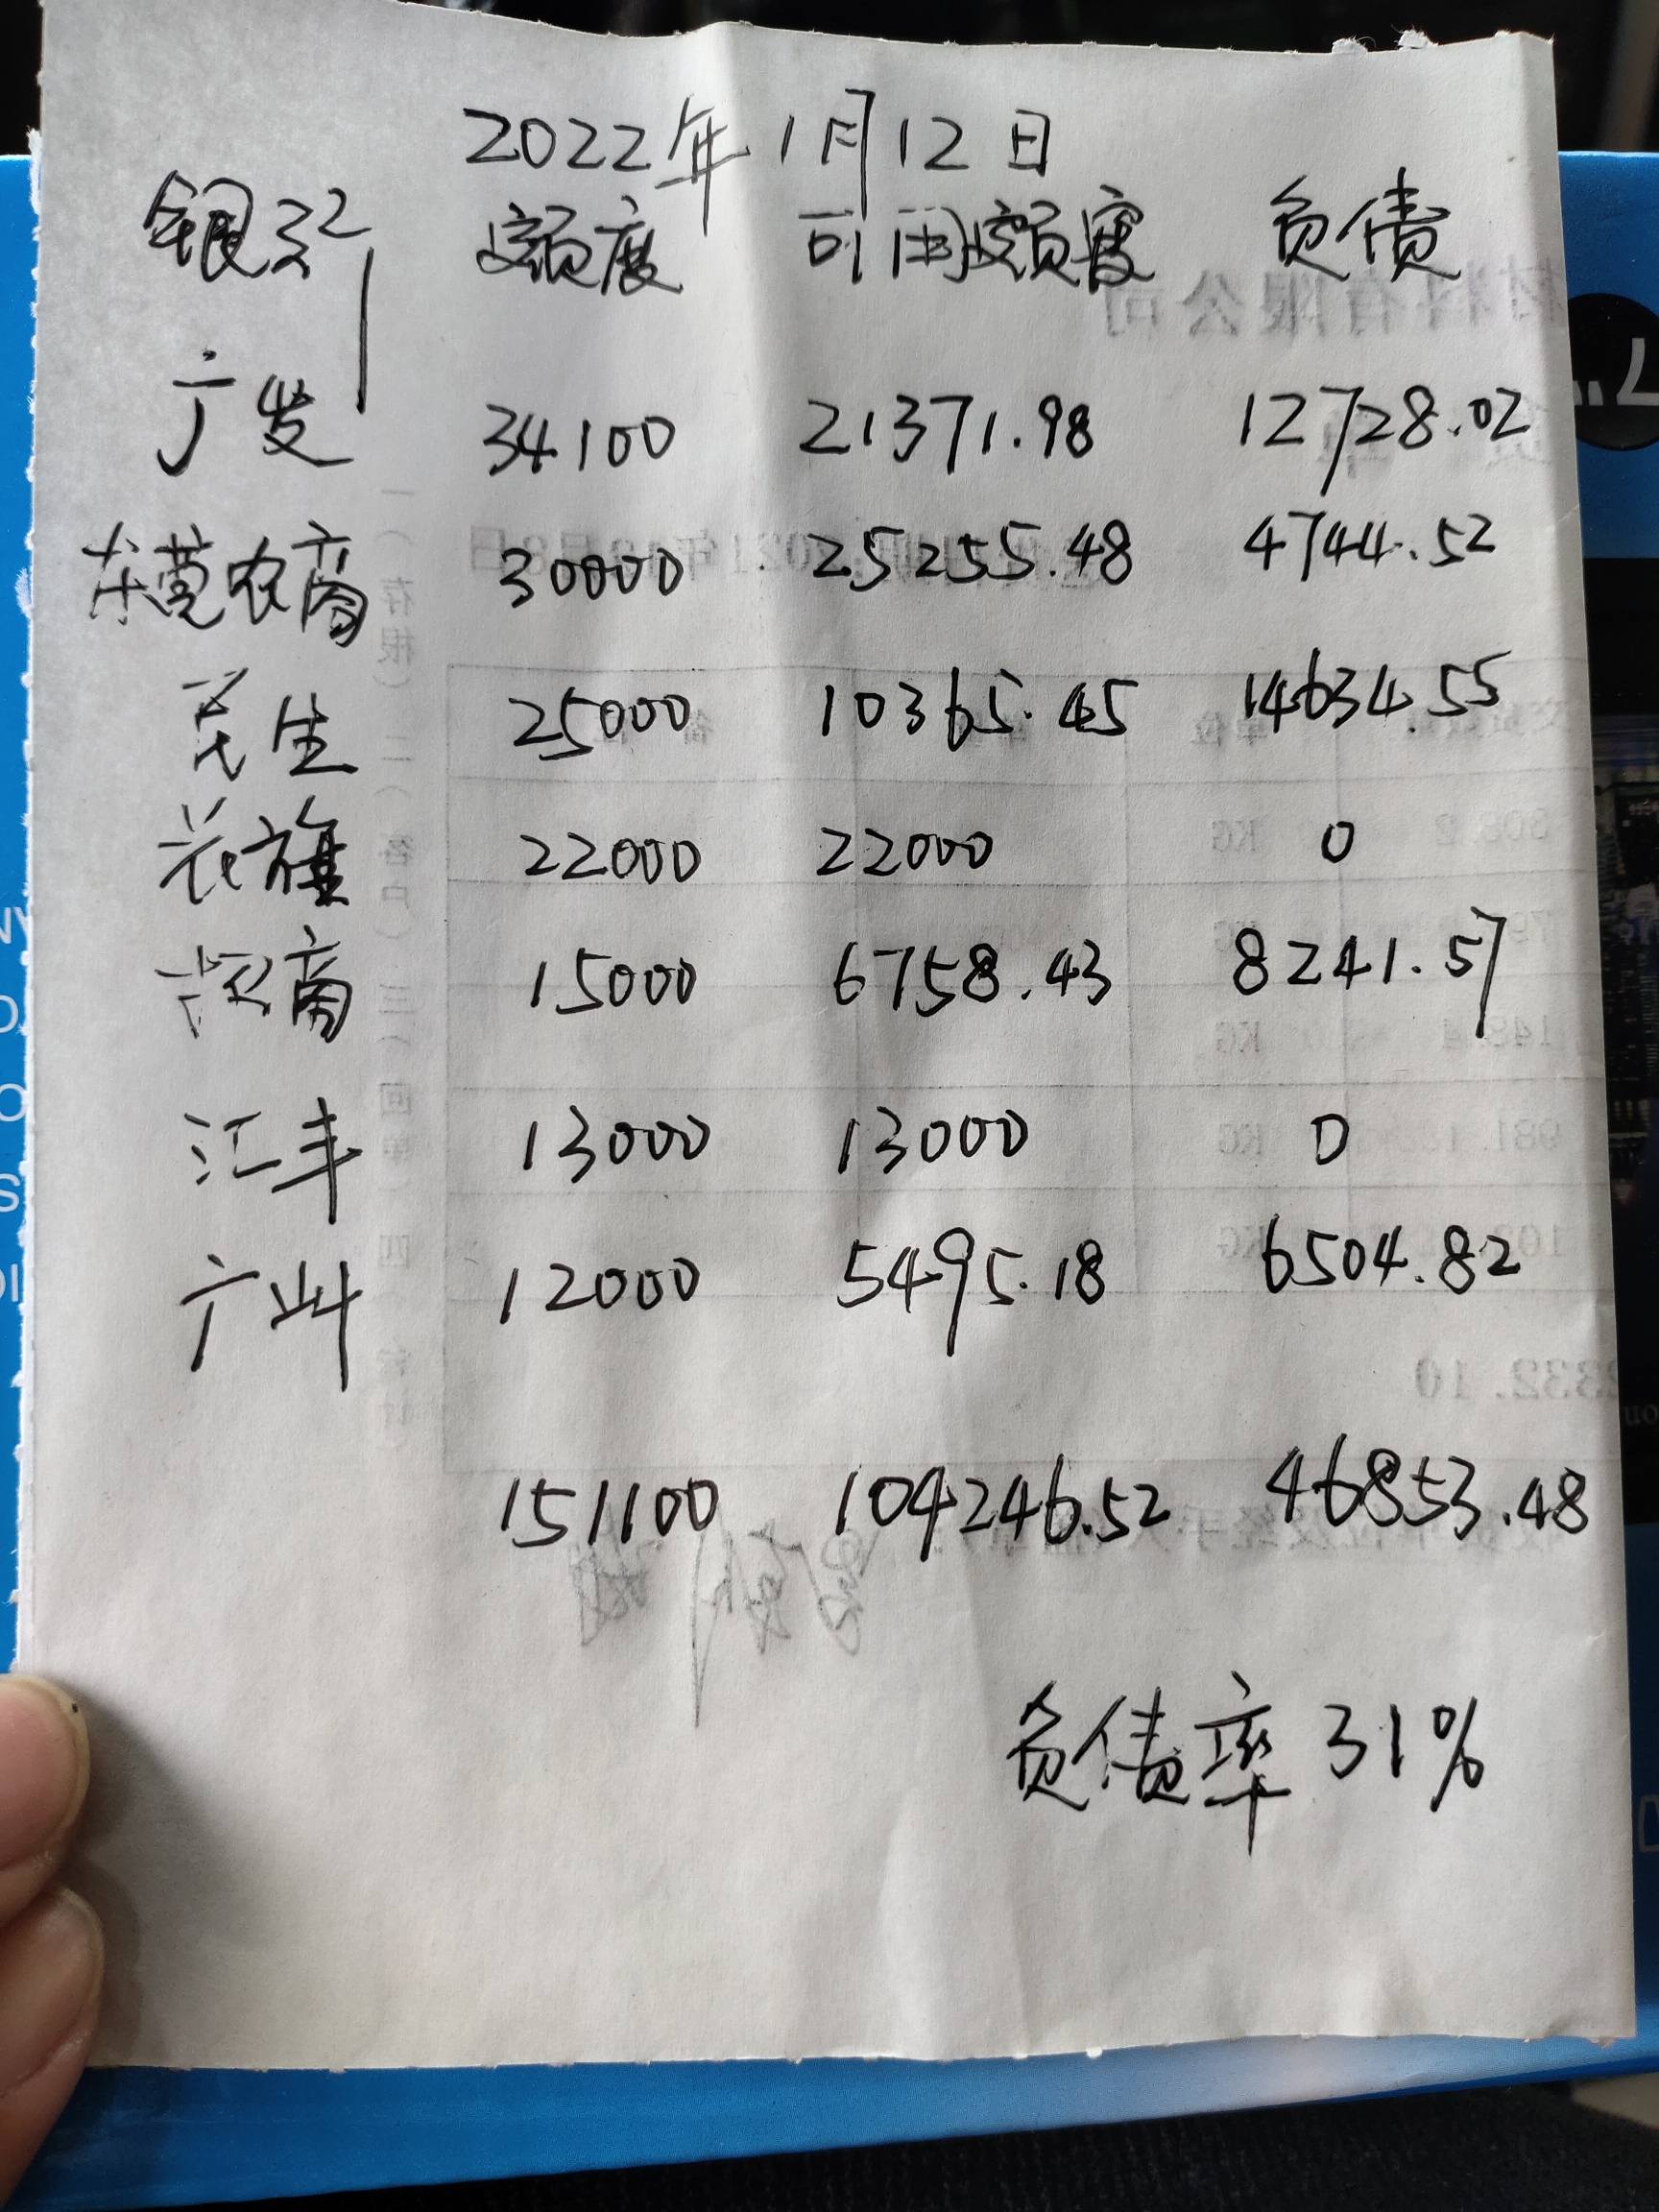 2022年1月12日
银行 额度 可用额度 负债
广发 34100 21371.98 12728.02
东莞农商 30000 25255.48 4744.52
民生 25000 10365.45 14634.55
花旗 22000 22000 0
招商 15000 6758.43 8241.57
汇丰 13000 13000 0
广州 12000 5495.18 6504.82
151100 104246.52 46853.48
负债率31%